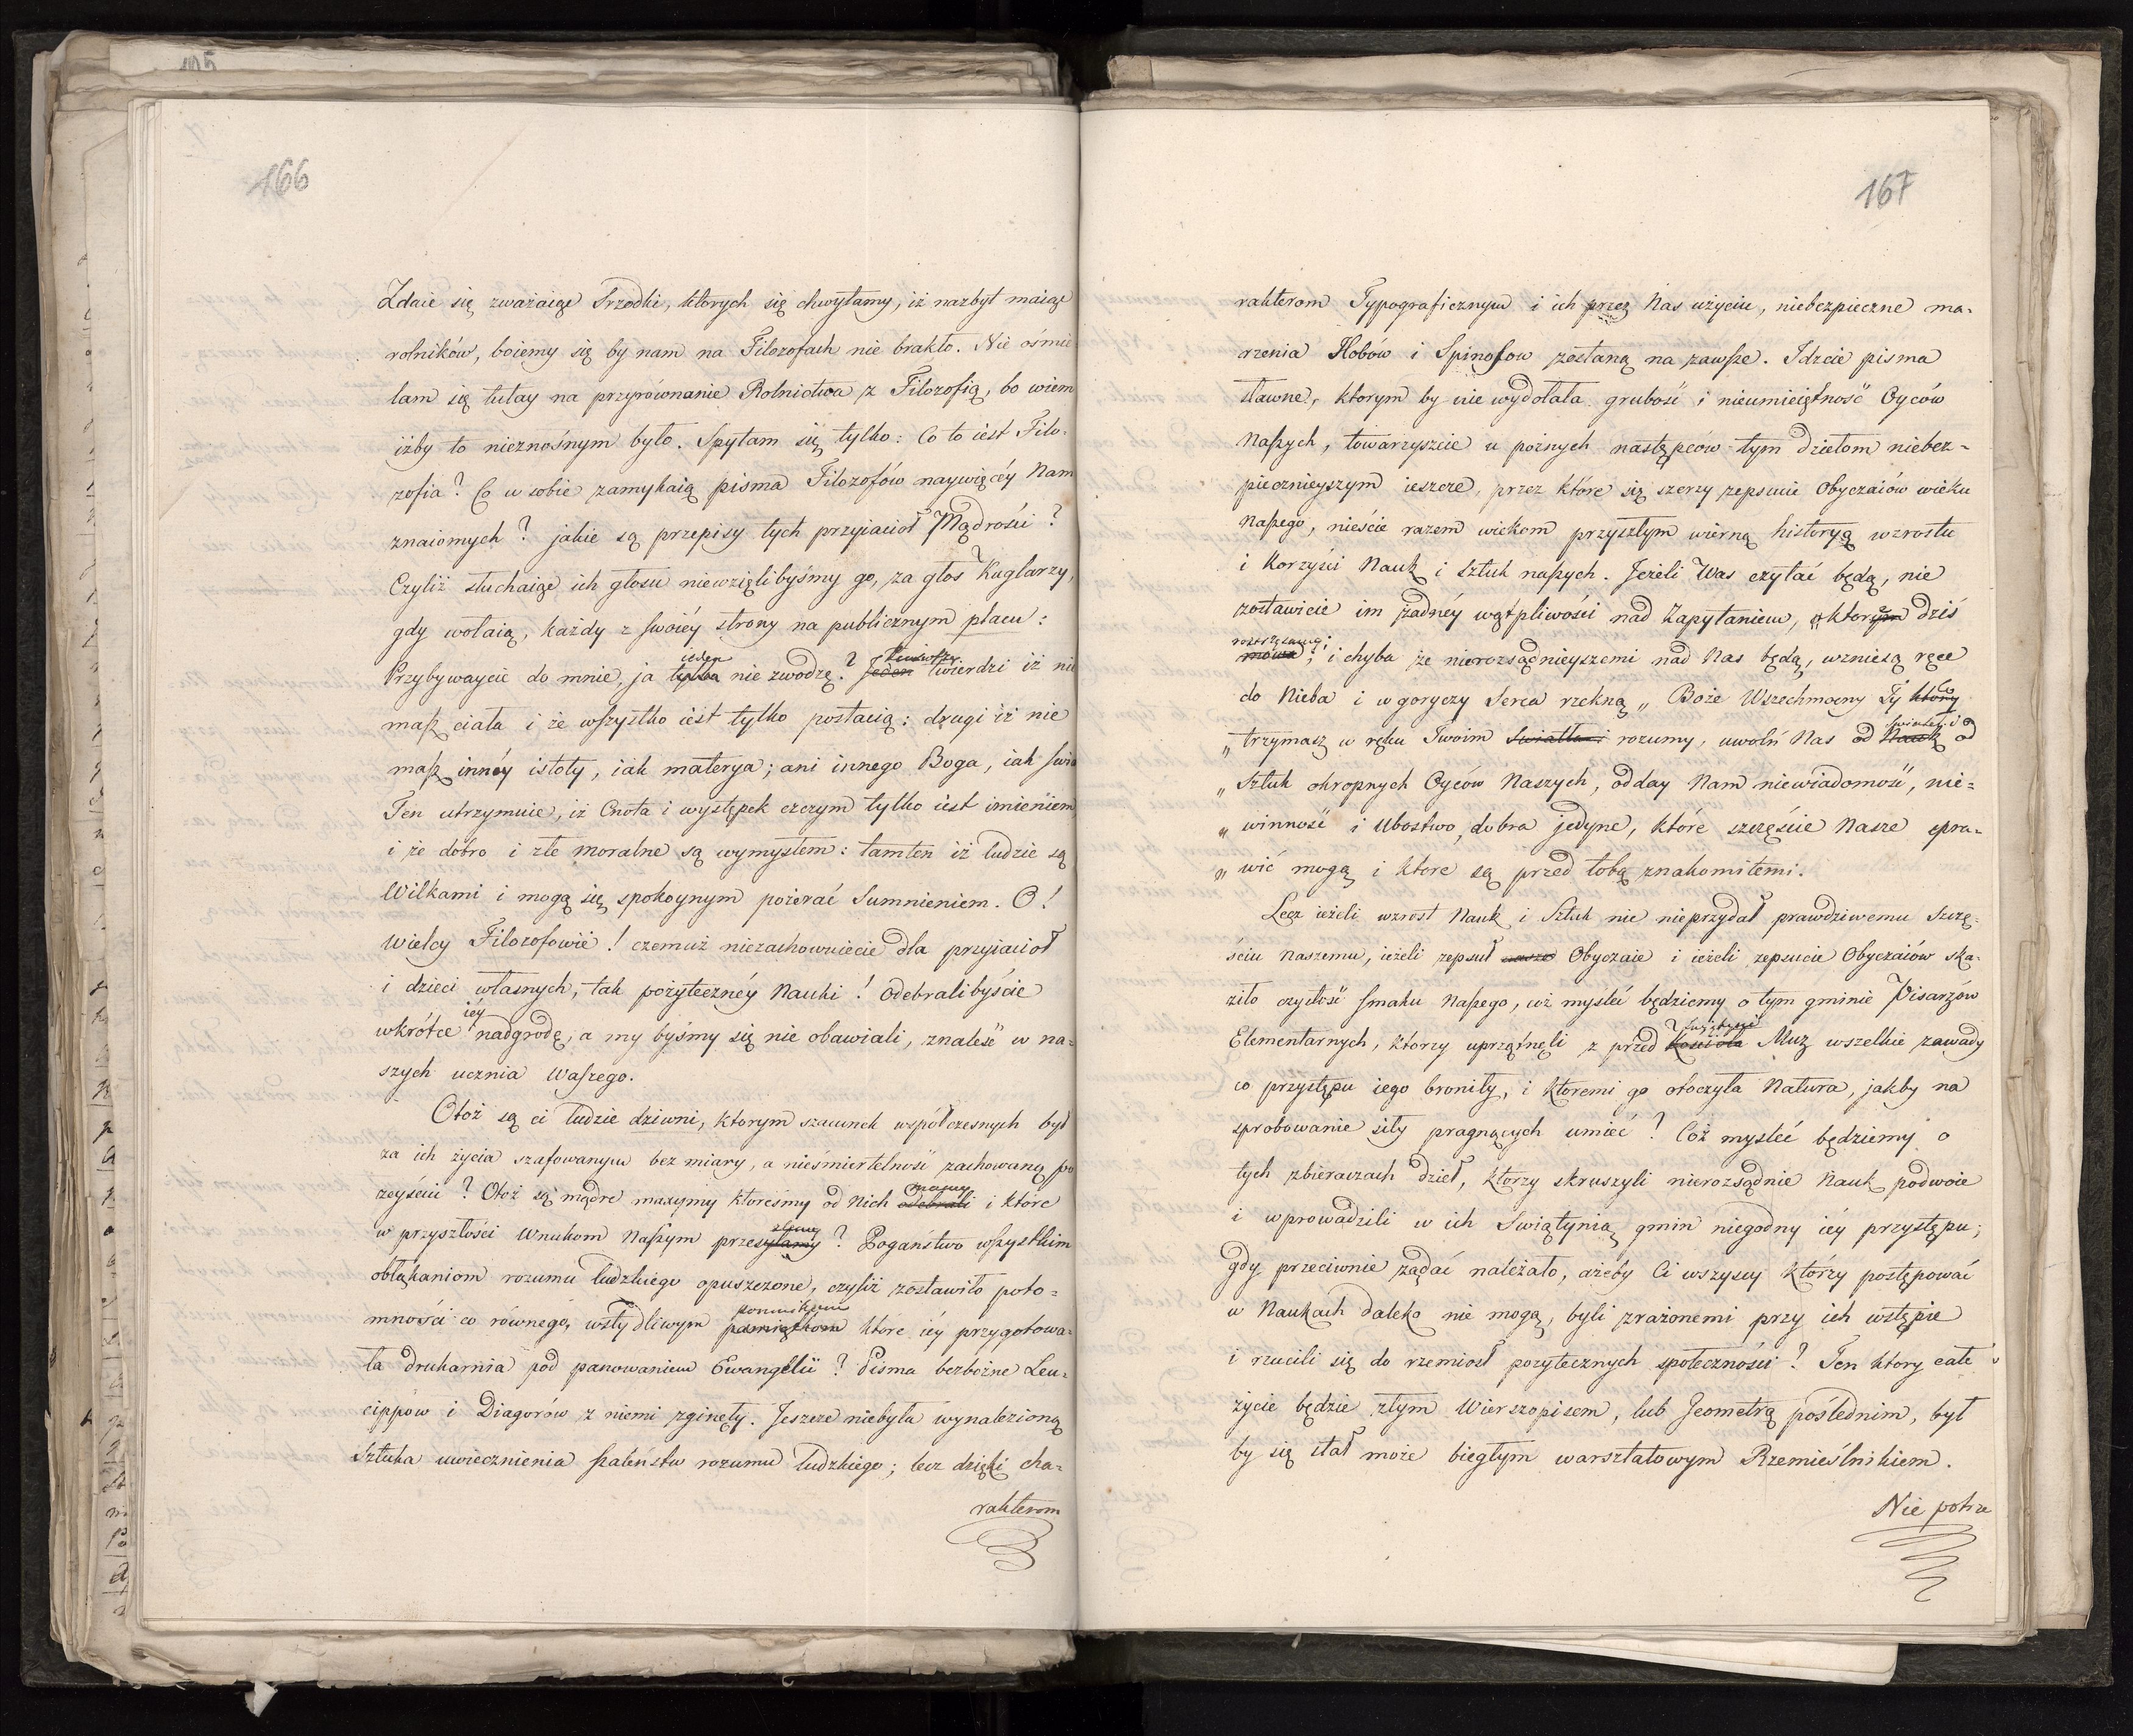 166
Zdaie się zważaiąc Srzodki, których się chwytamy, iż nazbyt maiąc
rolników, boiemy się by nam na Filozofach nie brakło. Nie ośmie
lam się tutay na przyrównanie Rolnictwa z Filozofią, bo wiem
iżby to nieznośnym było. Spytam się tylko: Co to iest Filo-
zofia? Co w sobie zamykaią pisma Filozofów naywięcéy Nam
znaiomych? jakie są przepisy tych przyiacioł Mądrości?
Czyliż słuchaiąc ich głosu niewzięlibyśmy go, za głos Kuglarzy,
gdy wołaią, każdy z swoiéy strony na publicznym placu:
ieden Pierwszy
Przybywaycie do mnie, ja tylko nie zwodzę? Jeden twierdzi iż nie
masz ciała i że wszystko iest tylko postacią: drugi iż nie
masz innéy istoty, iak materya; ani innego Boga, iak świa
Ten utrzymuie, iż Cnota i występek czczym tylko iest imieniem
i że dobro i złe moralne są wymysłem: tamten iż ludzie są
Wilkami i mogą się spokoynym pożerać Sumnieniem. O!
Wielcy Filozofowie! czemuż niezachowuiecie dla przyiacioł
i dzieci własnych, tak pożyteczney Nauki! Odebralibyście
iéy
wkrótce nadgrodę, a my byśmy się nie obawiali, znaleść w na-
szych ucznia Waszego.
Otoż są ci ludzie dziwni, ktorym szacunek współczesnych był
za ich życia szafowanym bez miary, a nieśmiertelność zachowaną po
mamy
zeyściu? Otoż są mądre maxymy ktoreśmy od Nich odebrali i które
szlemy
w przyszłości Wnukom Naszym przesyłamy? Pogaństwo wszystkim
obłąkaniom rozumu ludzkiego opuszczone, czyliż zostawiło poto-
pomnikom
mności co równego, wstydliwym pamiątkom które iéy przygotowa-
ła drukarnia pod panowaniem Ewangelii? Pisma bezbożne Leu-
cippow i Diagorów z niemi zginęły. Jeszcze niebyła wynalezioną
Sztuka uwiecznienia szaleństw rozumu ludzkiego; lecz dzięki cha-
rakterom
167
rakterom Typograficznym i ich przez Nas użyciu, niebezpieczne ma-
rzenia Hobów i Spinosow zostaną na zawsze. Idzcie pisma
sławne, ktorym by nie wydołała grubość i nieumieiętność Oyców
Naszych, towarzyszcie u poźnych następców tym dziełom niebez-
piecznieyszym ieszcze, przez które się szerzy zepsucie Obyczaiów wieku
Naszego, nieście razem wiekom przyszłym wierną historyą wzrostu
i Korzyści Nauk i Sztuk naszych. Jeżeli Was czytać będą, nie
zostawicie im żadnéy wątpliwości nad Zapytaniem, o którym dziś
roztrząsamy:
mowa; i chyba że nierozsądnieyszemi nad Nas będą, wzniosą ręce
co
do Nieba i w goryczy Serca rzekną „ Boże Wszechmocny Ty który
świateł i
„ trzymasz w ręku Twoim Swiatłem i rozumy, uwolń Nas od Nauk od
„ Sztuk okropnych Oyców Naszych, odday Nam niewiadomość, nie-
„ winność i Ubostwo, dobra jedyne, które szczęście Nasze spra-
„ wić mogą i ktore są przed tobą znakomitemi.
Lecz ieżeli wzrost Nauk i Sztuk nic nieprzydał prawdziwemu Szczę-
ściu Naszemu, ieżeli zepsuł nasze Obyczaie i ieżeli zepsucie Obyczaiów ska-
ziło czystość smaku Naszego, coż myśleć będziemy o tym gminie Pisarzów
Świątynię
Elementarnych, ktorzy uprzątnęli z przed Kościoła Muz wszelkie zawady
co przystępu iego broniły, i ktoremi go otoczyła Natura, jakby na
sprobowanie siły pragnących umieć? Coż myśleć będziemy o
tych zbieraczach dzieł, ktorzy skruszyli nierozsądnie Nauk podwoie
i wprowadzili w ich Świątynią gmin niegodny iéy przystępu;
gdy przeciwnie żądać należało, ażeby Ci wszyscy którzy postępować
w Naukach daleko nie mogą, byli zrażonemi przy ich wstępie
i rzucili się do rzemiosł pożytecznych społeczności? Ten ktory całe
życie będzie złym Wierszopisem, lub Jeometrą poślednim, był
by się stał może biegłym warsztatowym Rzemieślnikiem.
Nie potrze